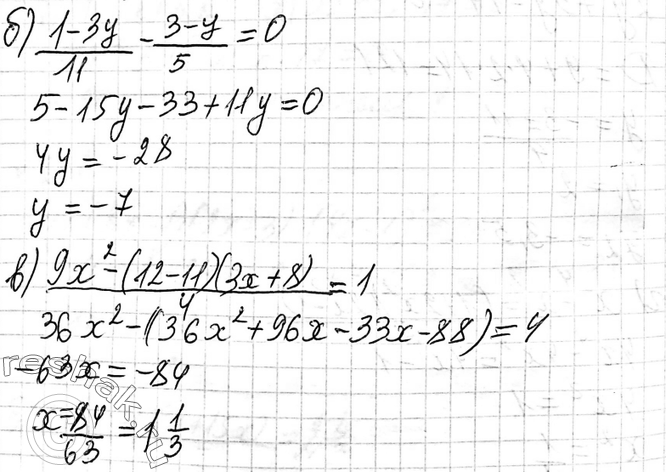 б) (1-3y)/11 - (3-y)/5 = 0
5-15y-33+11y=0
4y=-28
y=-7
в) 9x² - (12-11)(3x+8)/4 = 1
36x² - (36x²+96x-33x-88) = 4
-63x=-84
x=84/63=1 1/3